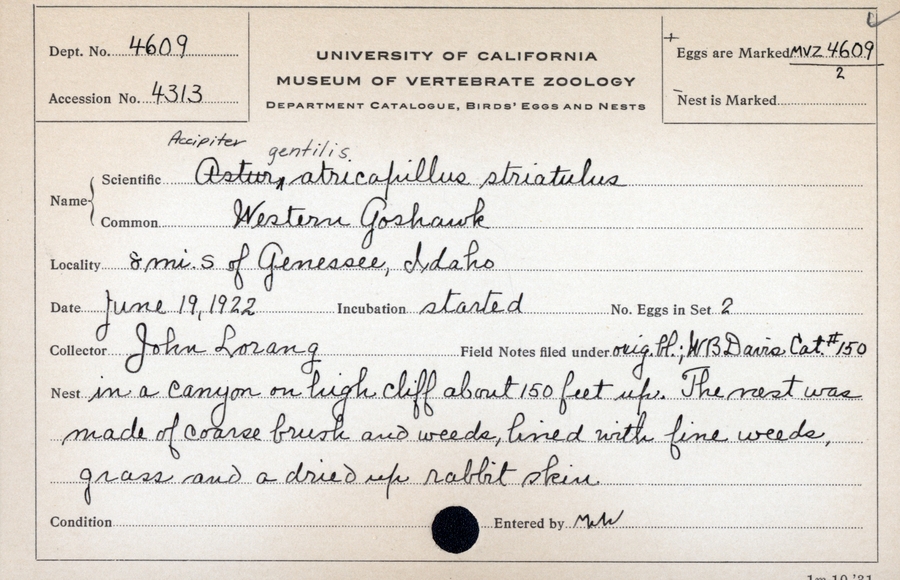 Dept. No. 4609
Accession No. 4313
UNIVERSITY OF CALIFORNIA
MUSEUM OF VERTEBRATE ZOOLOGY
DEPARTMENT CATALOGUE, BIRDS' EGGS AND NESTS
+ Eggs are Marked MVZ 4609
2
Nest is Marked
Accipiter gentilis.
Name Scientific Astur atricapillus striatulus
Common Western Goshawk
Locality 8 mi. S of Genessee, Idaho
Date June 19, 1922 Incubation started No. Eggs in Set 2
Collector John Lorang Field Notes filed under orig. bl.; WB Davis Cat. # 150
Nest in a canyon on high cliff about 150 feet up. The nest was
made of coarse brush and weeds, lined with fine weeds,
grass and a dried up rabbit skin.
Condition Entered by
1m 10 '31